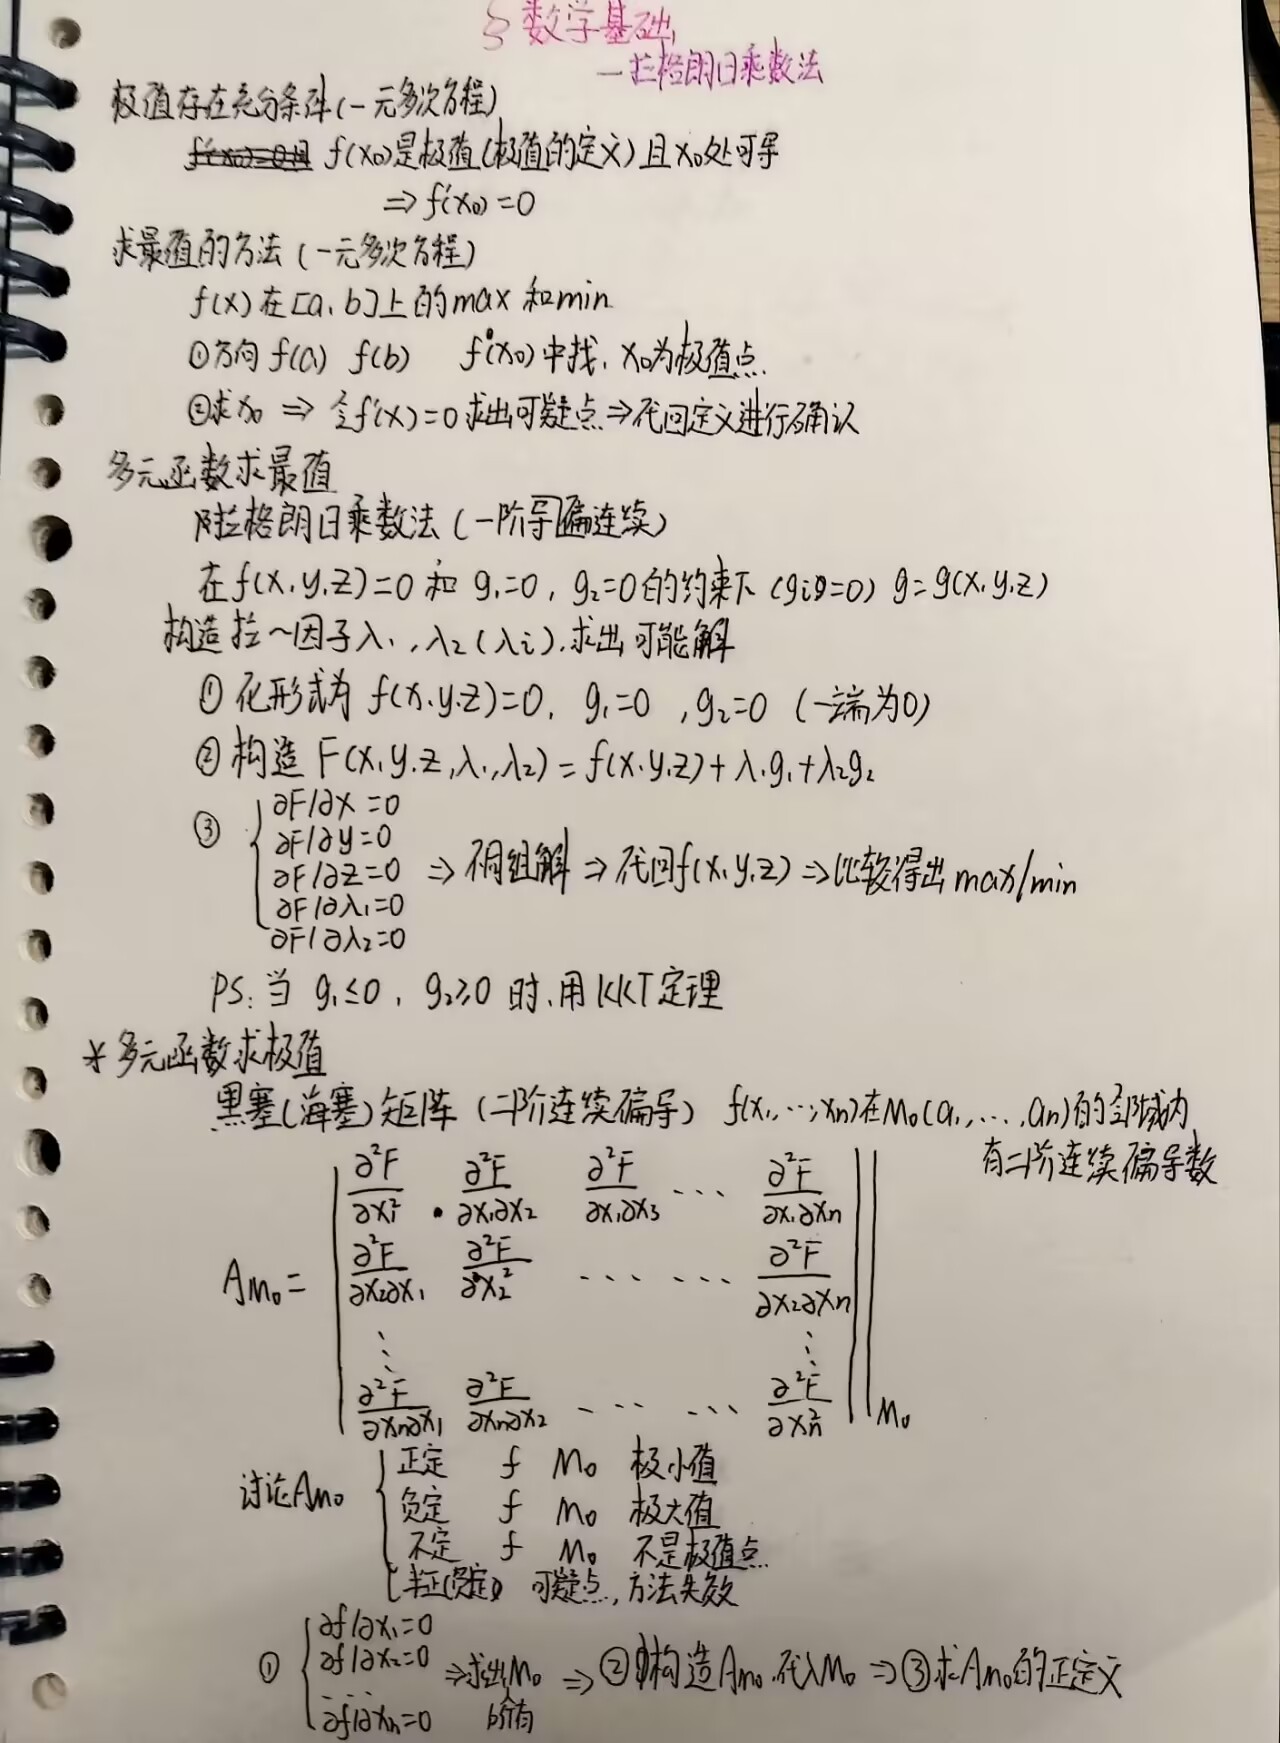 § 数学基础
—拉格朗日乘数法
极值存在充分条件(一元多次方程)
f(x₀)是极值(极值的定义)且x₀处可导
⇒ f'(x₀)=0
求最值的方法(一元多次方程)
f(x)在[a,b]上的max和min
①方向 f(a) f(b) f(x₀)中找, x₀为极值点.
②求x₀ ⇒ 令f'(x)=0求出可疑点⇒代回定义进行确认
多元函数求最值
拉格朗日乘数法(一阶导偏连续)
在f(x,y,z)=0和 g₁=0, g₂=0的约束下 g=g(x,y,z)
构造拉~因子λ₁,λ₂(λi).求出可能解
① 化形式为 f(x,y,z)=0, g₁=0 ,g₂=0 (一端为0)
② 构造 F(x,y,z,λ₁,λ₂)=f(x,y,z)+λ₁g₁+λ₂g₂
∂F/∂x=0
∂F/∂y=0
③ ∂F/∂z=0 ⇒ 组解 ⇒ 代回f(x,y,z) ⇒比较得出max/min
∂F/∂λ₁=0
∂F/∂λ₂=0
PS:当 g₁≤0, g₂≥0 时,用KKT定理
* 多元函数求极值
黑塞(海塞)矩阵 (二阶连续偏导) f(x₁,…,xn)在M₀(a₁,…,an)的邻域内
有二阶连续偏导数
∂²F/∂x₁² ∂²F/∂x₁∂x₂ ∂²F/∂x₁∂x₃ … ∂²F/∂x₁∂xn
A_M₀= ∂²F/∂x₂∂x₁ ∂²F/∂x₂² … … ∂²F/∂x₂∂xn
⋮ ⋮
∂²F/∂xn∂x₁ ∂²F/∂xn∂x₂ … … ∂²F/∂xn² M₀
正定 f M₀ 极小值
讨论A_M₀ 负定 f M₀ 极大值
不定 f M₀ 不是极值点
半正(负定) 可疑点,方法失效
∂f/∂x₁=0
① ∂f/∂x₂=0 ⇒求出M₀ ⇒ ②构造A_M₀.代入M₀ ⇒ ③求A_M₀的正定义
…
∂f/∂xn=0 所有